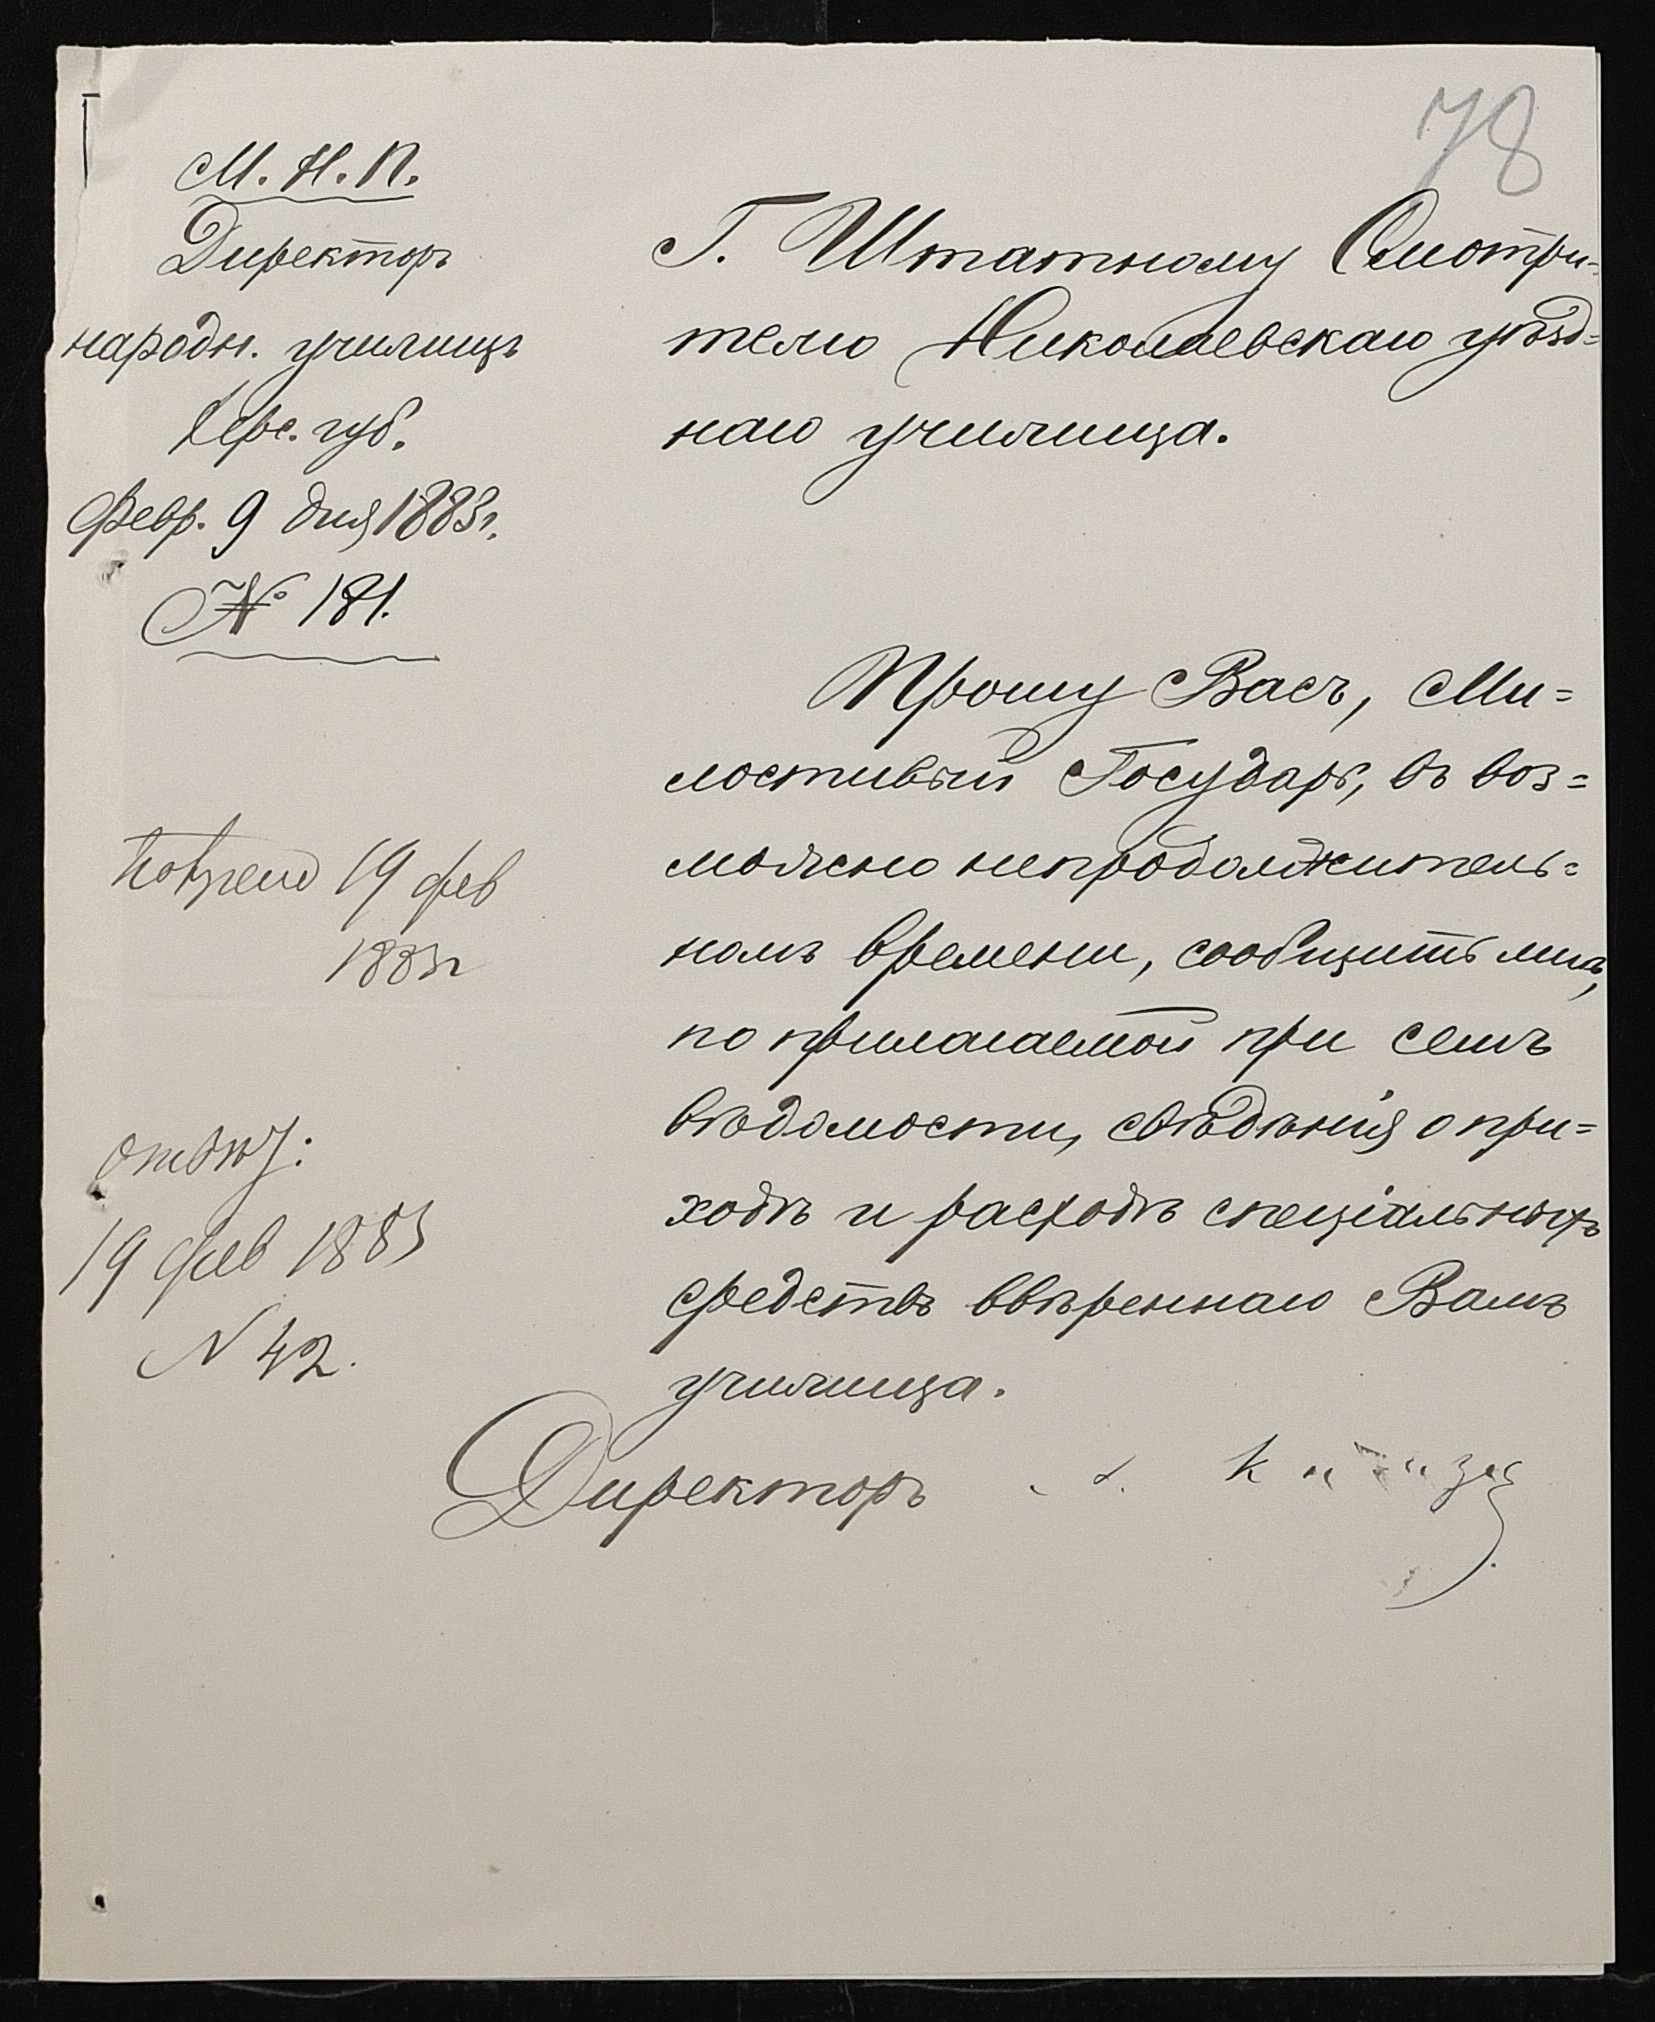 78
М. Н. П.
Директоръ
народн. училищъ
Херс. губ.
Февр. 9 дня 1883 г.
№ 181.
Г. Штатному Смотри=
телю Николаевскаго уѣзд=
наго училища.
Прошу Васъ, Ми=
лостивый Государь, въ воз=
можно непродолжитель=
номъ времени, сообщить мнѣ,
по прилагаемой при семъ
вѣдомости, свѣдѣнія о при=
ходѣ и расходѣ спеціальныхъ
средствъ ввѣреннаго Вамъ
училища.
Директоръ
19 фев
1883 г
19 фев 1883
N 42.